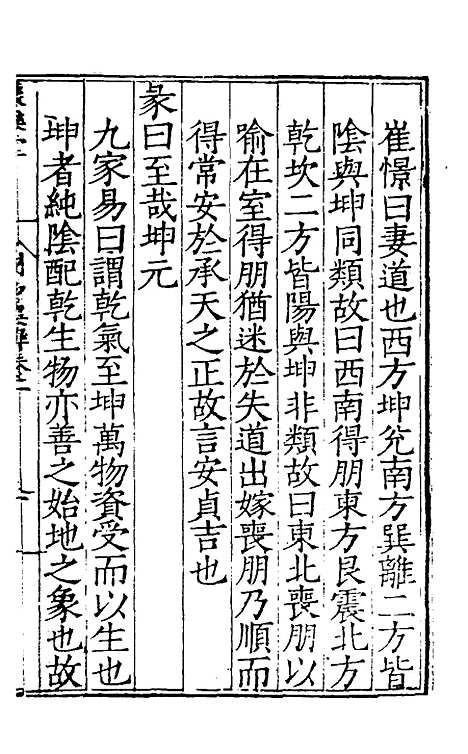 崔憬曰妻道也西方坤兊南方巽離二方皆
陰與坤同類故曰西南得朋東方艮震北方
乾坎二方皆陽與坤非類故曰東北喪朋以
喻在室得朋猶迷於失道出嫁喪朋乃順而
得常安於承天之正故言安貞吉也
彖曰至哉坤元
九家易曰謂乾氣至坤萬物資受而以生也
坤者純陰配乾生物亦善之始地之象也故